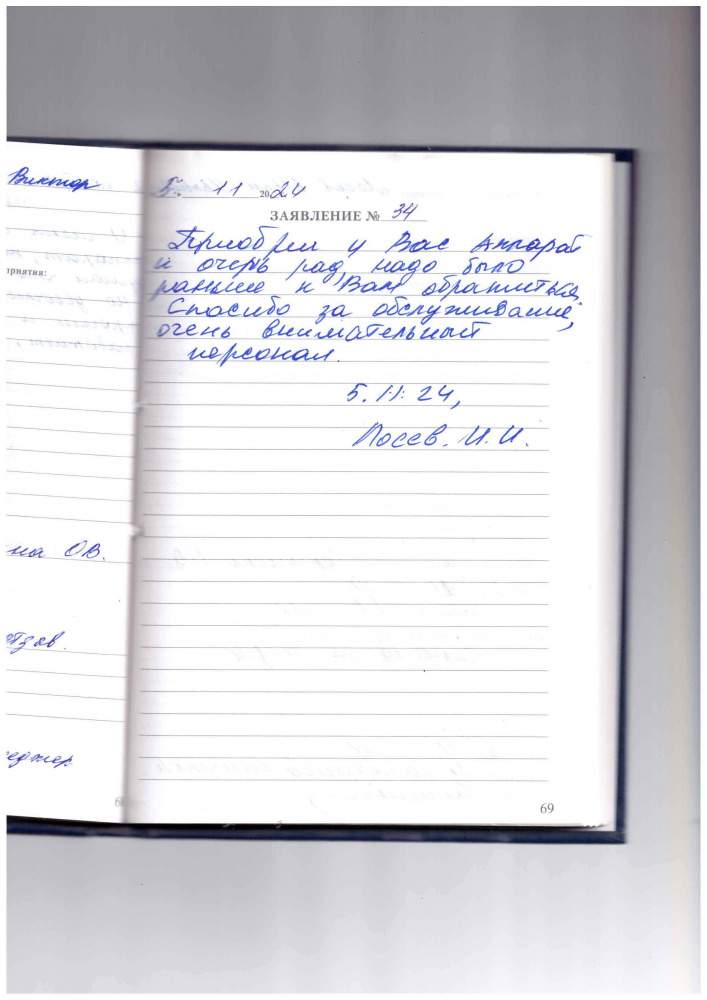 Виктор
5. 11 2024
ЗАЯВЛЕНИЕ № 34
Приобрел у Вас Аппарат
и очень рад, надо было
раньше к Вам обратиться.
Спасибо за обслуживание,
очень внимательный
персонал.
5.11.24,
Лосев. И.И.
приятия:
на О.В.
отзыв.
еджер
69